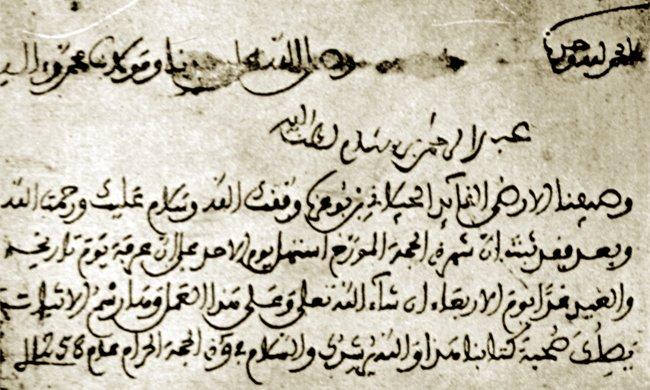 الحمد لله وحده
وصلى الله على سيدنا ومولانا محمد وآله
عبد الرحمن بن هشام لطف الله به
وصيفنا الأرضى القائد الجيلاني بن بوعزة وفقك الله وسلام عليك ورحمت الله
وبعد فقد ثبت ان شهر ذي الحجة المؤرخ استهل يوم الاحد على ان عرفة يوم تاريخه
والعيد غدا يوم الاربعاء ان شاء الله تعلى وعلى هذا العمل
يصلك صحبة كتابنا هذا والله يرشدك والسلام في 9 ذي الحجة الحرام عام 1258